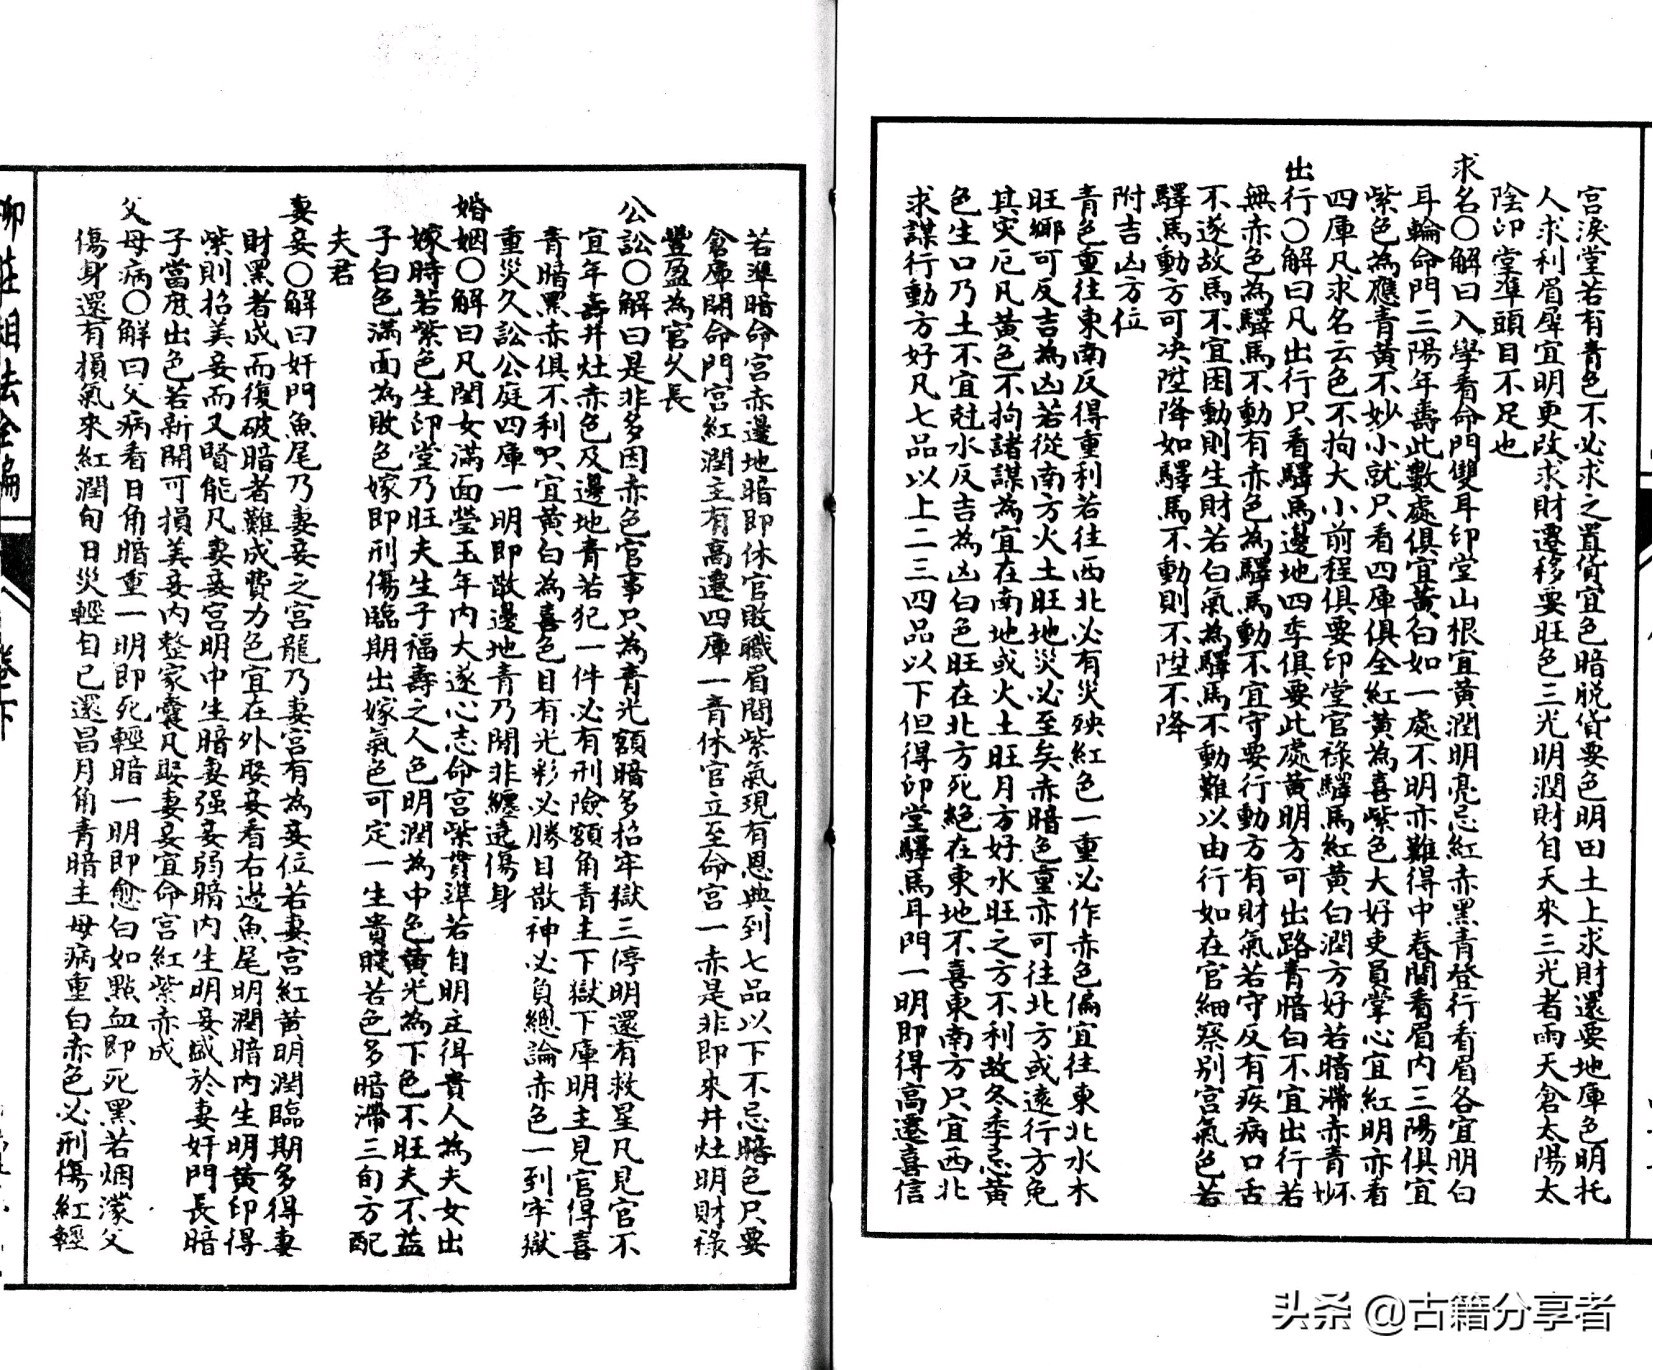 宮淚堂若有青色不必求之置貨宜色暗脱貨要色明田土上求財還要地庫色明托
人求利眉犀宜明更改求財遷移要旺色三光明潤財自天來三光者兩天倉太陽太
陰印堂準頭目不足也
求名〇解曰入學看命門雙耳印堂山根宜黃潤明亮忌紅赤黑青登行看眉各宜明白
耳輪命門三陽年壽此數處俱宜黃白如一處不明亦難得中春闈看眉內三陽俱宜
紫色為應青黃不妙小就只看四庫俱全紅黃為喜紫色大好吏員掌心宜紅明亦看
四庫凡求名云色不拘大小前程俱要印堂官祿驛馬紅黃白潤方好若暗滯赤青妙怀
出行〇解曰凡出行只看驛馬邊地四季俱要此處黃明方可出路青暗白不宜出行若
無赤色為驛馬不動有赤色為驛馬動不宜守要行動方有財氣若守反有疾病口舌
不遂故馬不宜困動則生財若白氣為驛馬不動難以由行如在官細察別宮氣色若
驛馬動方可决陞降如驛馬不動則不陞不降
附吉凶方位
青色重往東南反得重利若往西北必有災殃紅色一重必作赤色偏宜往東北水木
旺鄉可反吉為凶若從南方火土旺地災必至矣赤暗色重亦可往北方或遠行方免
其灾厄凡黃色不拘諸謀為宜在南地或火土旺月方好水旺之方不利故冬季忌黃
色生口乃土不宜尅水反吉為凶白色旺在北方死絕在東地不喜東南方只宜西北
求謀行動方好凡七品以上二三四品以下但得印堂驛馬耳門一明即得高遷喜信
若準暗命宮赤邊地暗即休官敗職眉間紫氣現有恩典到七品以下不忌暗色只要
倉庫開命門宮紅潤主有高遷四庫一青休官立至命宮一赤是非即來井灶明財祿
豐盈為官久長
公訟〇解曰是非多因赤色官事只為青光額暗多招牢獄三停明還有救星凡見官不
宜年壽井灶赤色及邊地青若犯一件必有刑險額角青主下獄下庫明主見官得喜
青暗黑赤俱不利只宜黃白為喜色目有光彩必勝目散神必負總論赤色一到牢獄
重災久訟公庭四庫一明即散邊地青乃閒非纏遶傷身
婚姻〇解曰凡閨女滿面瑩玉年內大遂心志命宮紫貫準若自明主得貴人為夫女出
嫁時若紫色生印堂乃旺夫生子福壽之人色明潤為中色黃光為下色不旺夫不益
子白色滿面為敗色嫁即刑傷臨期出嫁氣色可定一生貴賤若色多暗滯三旬方配
夫君
妻妾〇解曰奸門魚尾乃妻妾之宮龍乃妻宮有為妾位若妻宮紅黃明潤臨期多得妻
財黑者成而復破暗者難成費力色宜在外娶妾看右边魚尾明潤暗內生明黃印得
紫則招美妾而又賢能凡妻妾宮明中生暗妻强妾弱暗內生明妾盛於妻奸門長暗
子當庶出色若新開可損美妾內整家囊凡娶妻妾宜命宮紅紫亦成
父母病〇解曰父病看日角暗重一明即死輕暗一明即愈白如點血即死黑若烟濛父
傷身還有損氣來紅潤旬日災輕自己還昌月角青暗主母病重白赤色必刑傷紅輕
柳莊相法全編
卷下
头条 @古籍分享者